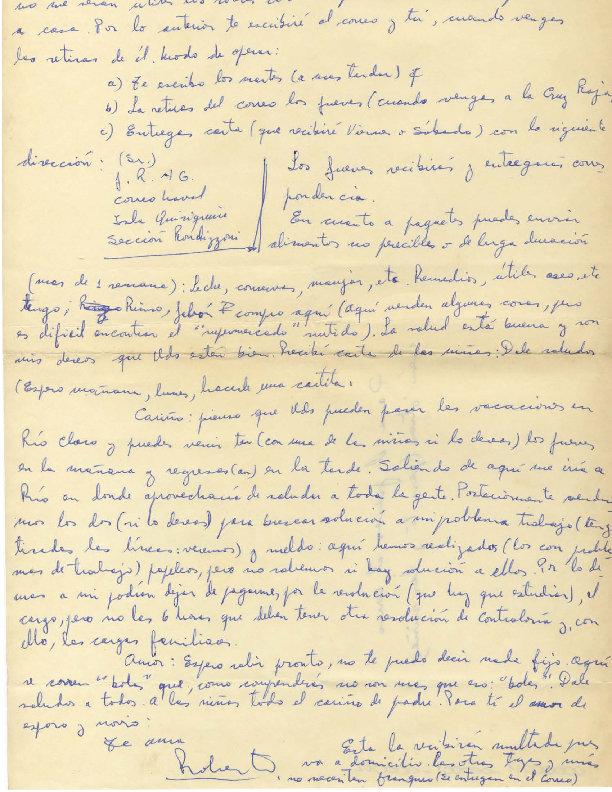 no me serán útiles los
a casa. Por lo anterior te escribiré al correo y tú, cuando vengas
las retiras de él. Modo de operar:
a) Te escribo los martes (a mas tardar)
b) La retiras del correo los jueves (cuando vengas a la Cruz Roja
c) Entregas carta (que recibiré Viernes o Sábado) con la siguiente
dirección: (Sr.)
J. R. N G.
correo naval
Isla Quiriquina
Sección Rondizzoni
Los jueves recibirás y entregarás corres
pondencia.
En cuanto a paquetes puedes enviar
alimentos no perecibles o de larga duración
(mas de 1 semana): Leche, conservas, manjar, etc. Remedios, útiles aseo, etc
tengo; Rinso, jabón compro aquí (aquí venden algunas cosas, pero
es difícil encontrar el "supermercado" surtido). La salud está buena y son
mis deseos que Uds estén bien. Recibí carta de las niñas: Dale saludos
(Espero mañana, lunes, hacerle una cartita.
Cariño: pienso que Uds pueden pasar las vacaciones en
Río Claro y puedes venir tu (con una de las niñas si lo deseas) los jueves
en la mañana y regresas(an) en la tarde. Saliendo de aquí me iría a
Río en donde aprovecharía de saludar a toda la gente. Posteriormente vendría
mos los dos (si lo deseas) para buscar solución a mi problema trabajo (tengo
tiradas las líneas: veremos) y sueldo: aquí hemos realizados (los con proble
mas de trabajo) papeleos, pero no sabemos si hay solución a ellos. Por lo de
mas a mi podrían dejar de pagarme, por la resolución (que hay que estudiar), el
cargo, pero no las 6 horas que deben tener otra resolución de Contraloría y, con
ello, las cargas familiares.
Amor: Espero salir pronto, no te puedo decir nada fijo. Aquí
se corren "bolas" que, como comprenderás no son mas que eso: "bolas". Dale
saludos a todos. a las niñas todo el cariño de padre. Para ti el amor de
esposo y novio:
Te ama
Roberto
Esta la recibirán multada pues
va a domicilio. las otras tuyas y mías
no necesitan franqueo (se entregan en el correo)